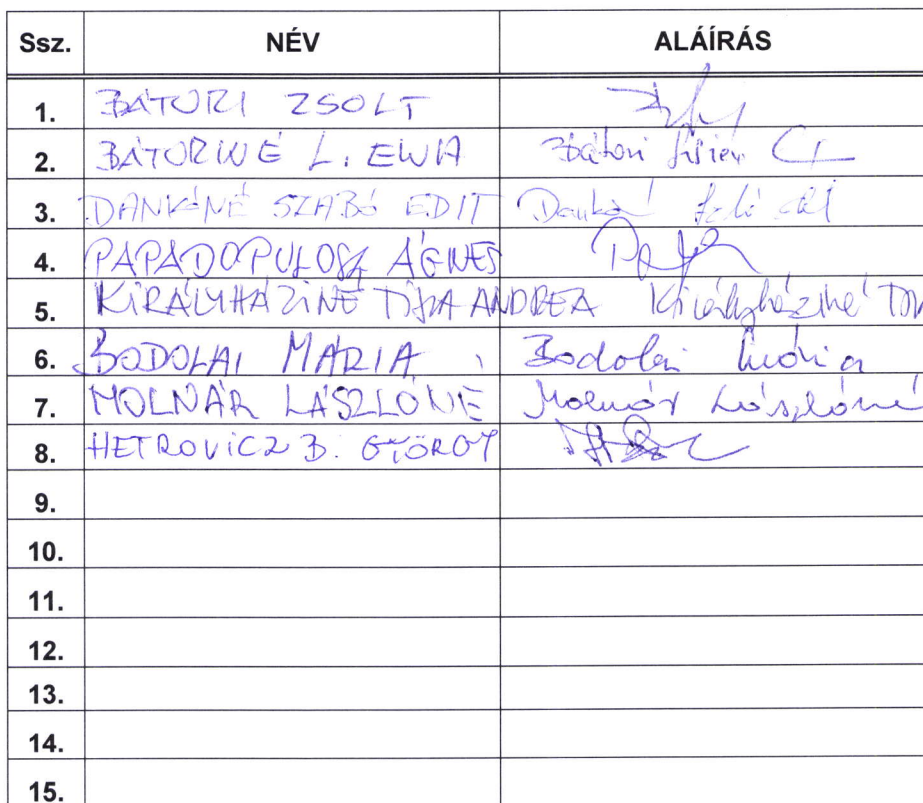 Ssz. NÉV ALÁÍRÁS
1. BÁTORI ZSOLT
2. BÁTORINÉ L. Bátori
3. DANKÓNÉ SZABÓ EDIT
4. PAPADOPULOSZ ÁGNES
5. KIRÁLYHÁZINÉ ANDREA Királyháziné
6. BODOLAI MÁRIA Bodolai Mária
7. MOLNÁR LÁSZLÓNÉ Molnár Lászlóné
8. HETROVICZ B. GYÖRGY
9.
10.
11.
12.
13.
14.
15.